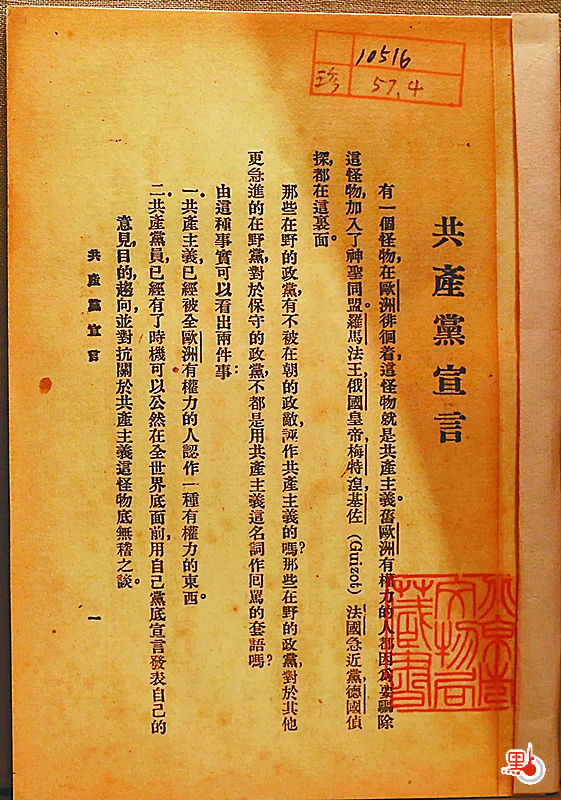 10516
珍 57.4
共產黨宣言
有一個怪物,在歐洲徘徊着,這怪物就是共產主義。舊歐洲有權力的人都因爲要驅除
這怪物,加入了神聖同盟。羅馬法王,俄國皇帝,梅特涅,基佐(Guizot)法國急近黨,德國偵
探,都在這裏面。
那些在野的政黨,有不被在朝的政敵,誣作共產主義的嗎?那些在野的政黨,對於其他
更急進的在野黨,對於保守的政黨,不都是用共產主義這名詞作回罵的套語嗎?
由這種事實可以看出兩件事:
一.共產主義,已經被全歐洲有權力的人認作一種有權力的東西。
二.共產黨員,已經有了時機可以公然在全世界底面前,用自己黨底宣言發表自己的
意見,目的,趨向,並對抗關於共產主義這怪物底無稽之談。
共產黨宣言
一
北京市
文物局
藏書
點